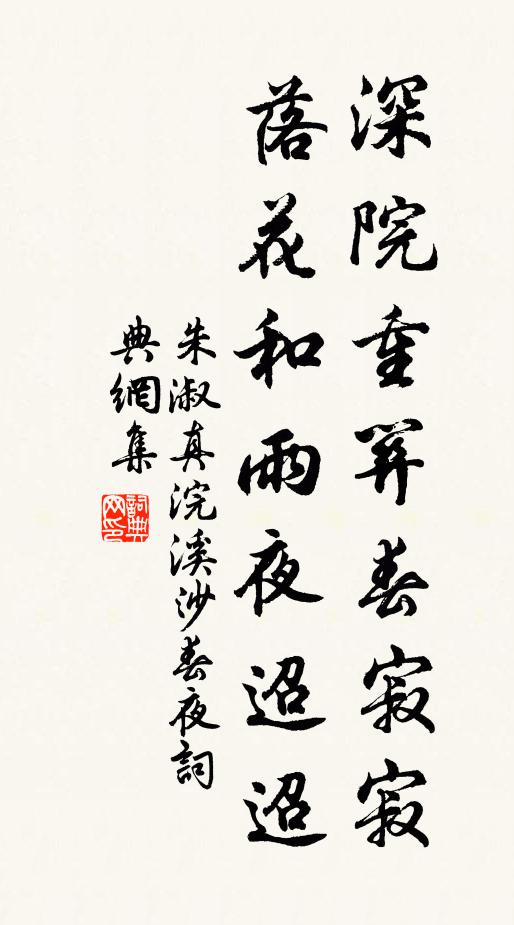 深院重關春寂寂
落花和雨夜迢迢
朱淑真浣溪沙春夜詞
典網集
詞典
网印